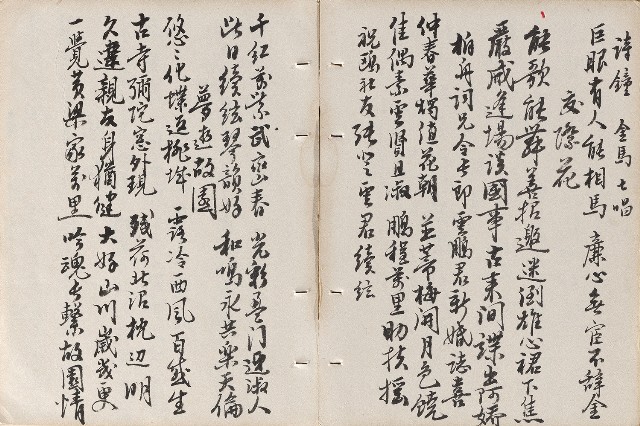 詩鐘 金馬 七唱
巨眼有人能相馬 廉心無宦不辭金
交際花
能歌能舞善招邀 迷倒雄心裙下焦
嚴威逢場談國事 古來間諜出阿嬌
柏舟詞兄令長郎雲鵬君新婚誌喜
仲春華燭值花朝 並蒂梅開月色饒
佳偶素雲賢且淑 鵬程萬里助扶搖
祝鷗社友張登雲君續絃
千紅萬紫武巒春 光彩盈門迓淑人
此日續絃琴韻好 和鳴永共樂天倫
夢遊故園
悠々化蝶返桃城 露冷西風百感生
古寺彌陀窓外現 殘荷北沼枕邊明
久違親友身猶健 大好山川歲幾更
一覺黃粱家萬里 吟魂長繫故園情